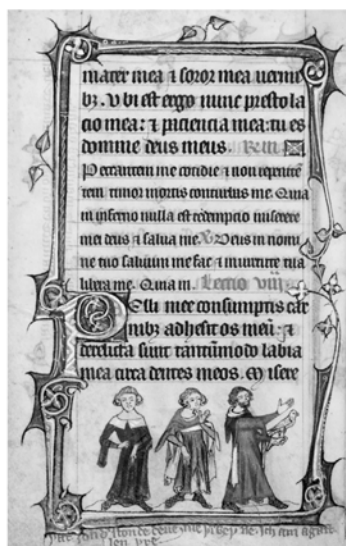 mater mea ⁊ soror mea uermi
bꝫ. Vbi est ergo nunc presto la
cio mea: ⁊ paciencia mea: tu es
domine deus meus.
Peccantem me cotidie ⁊ non repente
tem timor mortis conturbat me. Quia
in inferno nulla est redempcio miserere
mei deus ⁊ salua me. Deus in nomi
ne tuo saluum me fac ⁊ in uirtute tua
libera me. Quia in. Lectio viii
Pelli mee consumptis car
nibꝫ adhesit os meū: ⁊
derelicta sunt tantūmodo labia
mea circa dentes meos. Misere
Ich am agast